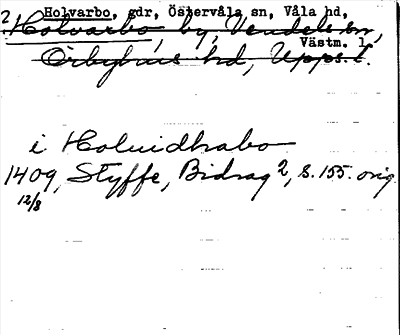 2 Holvarbo, gdr, Östervåla sn, Våla hd,
Västm. l.
Holvarbo, by, Vendels sn,
Örbyhus hd, Upps. l.
i Holuidhabo
1409, Styffe, Bidrag 2, s. 155. orig.
12/8